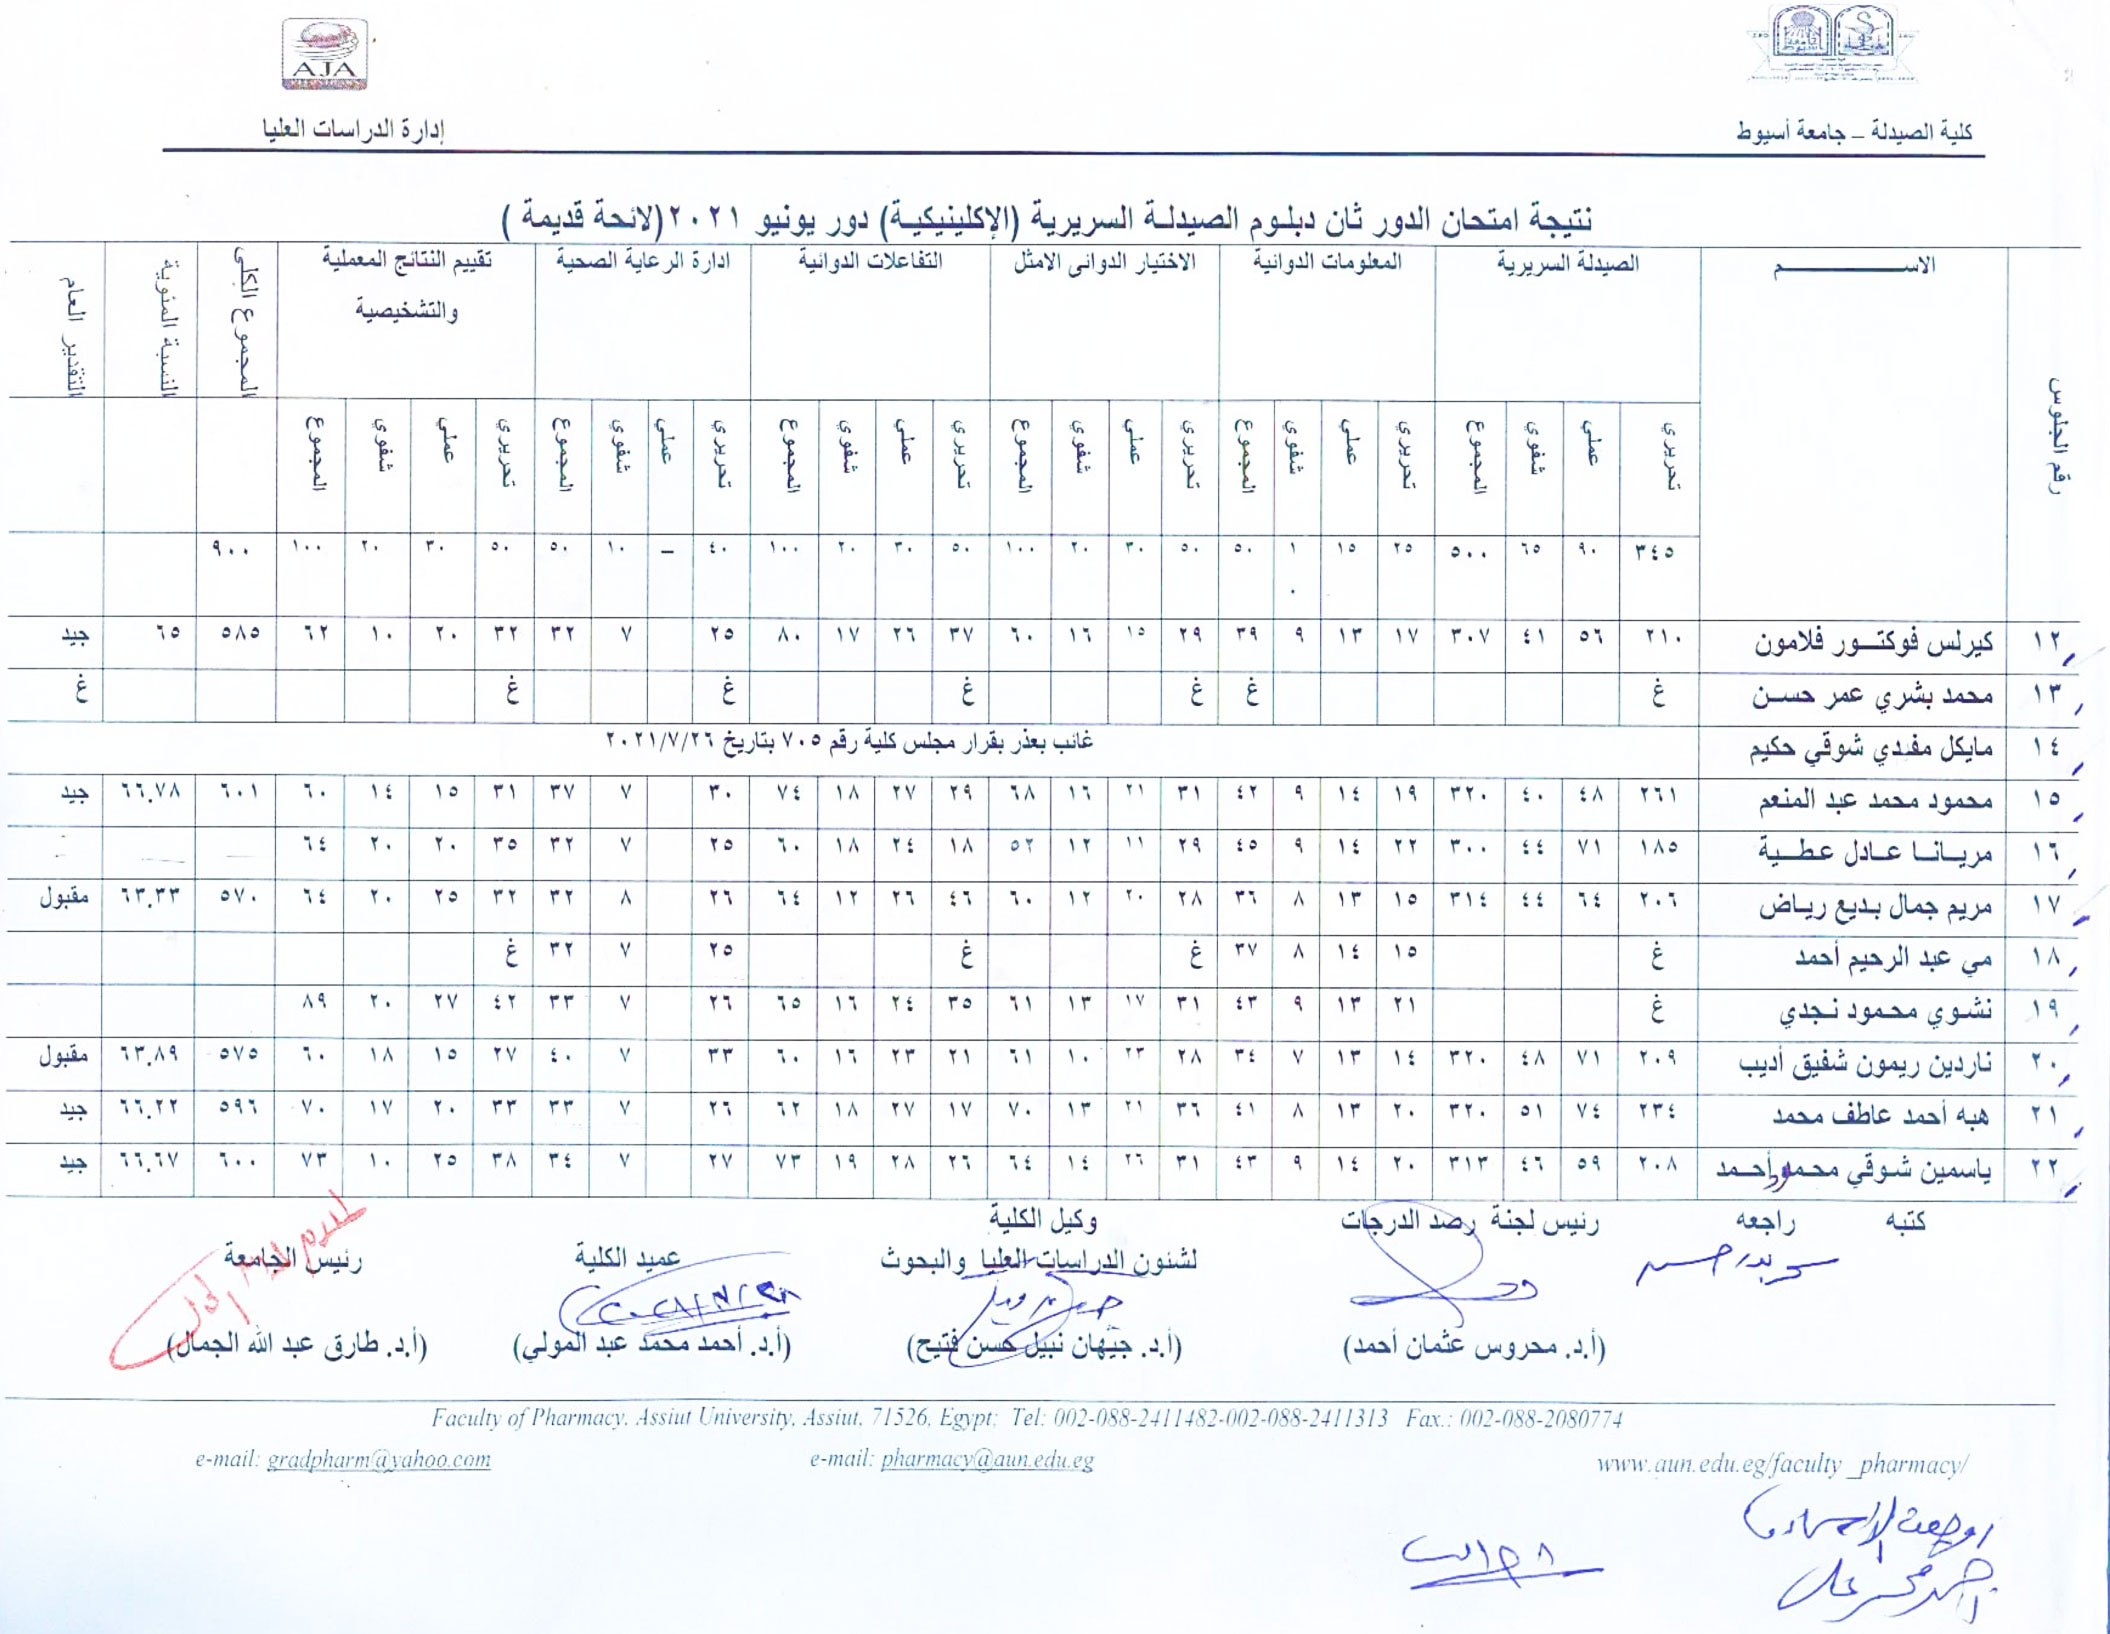 AJA
كلية الصيدلة – جامعة أسيوط
إدارة الدراسات العليا
نتيجة امتحان الدور ثان دبلوم الصيدلة السريرية (الإكلينيكية) دور يونيو ٢٠٢١(لائحة قديمة )
رقم الجلوس الاســـــم الصيدلة السريرية المعلومات الدوائية الاختيار الدوائى الامثل التفاعلات الدوائية ادارة الرعاية الصحية تقييم النتائج المعملية والتشخيصية المجموع الكلى النسبة المئوية التقدير العام
تحريري عملي شفوي المجموع تحريري عملي شفوي المجموع تحريري عملي شفوي المجموع تحريري عملي شفوي المجموع تحريري عملي شفوي المجموع تحريري عملي شفوي المجموع
٣٤٥ ٩٠ ٦٥ ٥٠٠ ٢٥ ١٥ ١٠ ٥٠ ٥٠ ٣٠ ٢٠ ١٠٠ ٥٠ ٣٠ ٢٠ ١٠٠ ٤٠ – ١٠ ٥٠ ٥٠ ٣٠ ٢٠ ١٠٠ ٩٠٠
١٢ كيرلس فوكتـور فلامون ٢١٠ ٥٦ ٤١ ٣٠٧ ١٧ ١٣ ٩ ٣٩ ٢٩ ١٥ ١٦ ٦٠ ٣٧ ٢٦ ١٧ ٨٠ ٢٥ ٧ ٣٢ ٣٢ ٢٠ ١٠ ٦٢ ٥٨٥ ٦٥ جيد
١٣ محمد بشري عمر حسـن غ غ غ غ غ غ غ
١٤ مايكل مفيدي شوقي حكيم غائب بعذر بقرار مجلس كلية رقم ٧٠٥ بتاريخ ٢٠٢١/٧/٢٦
١٥ محمود محمد عبد المنعم ٢٦١ ٤٨ ٤٠ ٣٢٠ ١٩ ١٤ ٩ ٤٢ ٣١ ٢١ ١٦ ٦٨ ٢٩ ٢٧ ١٨ ٧٤ ٣٠ ٧ ٣٧ ٣١ ١٥ ١٤ ٦٠ ٦٠١ ٦٦,٧٨ جيد
١٦ مريـانـا عـادل عطـيـة ١٨٥ ٧١ ٤٤ ٣٠٠ ٢٢ ١٤ ٩ ٤٥ ٢٩ ١١ ١٢ ٥٢ ١٨ ٢٤ ١٨ ٦٠ ٢٥ ٧ ٣٢ ٣٥ ٢٠ ٢٠ ٦٤
١٧ مريم جمال بديع ريـاض ٢٠٦ ٦٤ ٤٤ ٣١٤ ١٥ ١٣ ٨ ٣٦ ٢٨ ٢٠ ١٢ ٦٠ ٤٦ ٢٦ ١٢ ٦٤ ٢٦ ٨ ٣٢ ٣٢ ٢٥ ٢٠ ٦٤ ٥٧٠ ٦٣,٣٣ مقبول
١٨ مي عبد الرحيم أحمد غ ١٥ ١٤ ٨ ٣٧ غ غ ٢٥ ٧ ٣٢ غ
١٩ نشـوي محمـود نـجدي غ ٢١ ١٣ ٩ ٤٣ ٣١ ١٧ ١٣ ٦١ ٣٥ ٢٤ ١٦ ٦٥ ٢٦ ٧ ٣٣ ٤٢ ٢٧ ٢٠ ٨٩
٢٠ ناردين ريمون شفيق أديب ٢٠٩ ٧١ ٤٨ ٣٢٠ ١٤ ١٣ ٧ ٣٤ ٢٨ ٢٣ ١٠ ٦١ ٢١ ٢٣ ١٦ ٦٠ ٣٣ ٧ ٤٠ ٢٧ ١٥ ١٨ ٦٠ ٥٧٥ ٦٣,٨٩ مقبول
٢١ هبه أحمد عاطف محمد ٢٣٤ ٧٤ ٥١ ٣٢٠ ٢٠ ١٣ ٨ ٤١ ٣٦ ٢١ ١٣ ٧٠ ١٧ ٢٧ ١٨ ٦٢ ٢٦ ٧ ٣٣ ٣٣ ٢٠ ١٧ ٧٠ ٥٩٦ ٦٦,٢٢ جيد
٢٢ ياسمين شـوقي محمود أحـمد ٢٠٨ ٥٩ ٤٦ ٣١٣ ٢٠ ١٤ ٩ ٤٣ ٣١ ٢٦ ١٤ ٦٤ ٢٦ ٢٨ ١٩ ٧٣ ٢٧ ٧ ٣٤ ٣٨ ٢٥ ١٠ ٧٣ ٦٠٠ ٦٦,٦٧ جيد
كتبه راجعه رئيس لجنة رصد الدرجات وكيل الكلية
لشئون الدراسات العليا والبحوث عميد الكلية رئيس الجامعة
(أ.د. محروس عثمان أحمد) (أ.د. جيهان نبيل حسن فتيح) (أ.د. أحمد محمد عبد المولي) (أ.د. طارق عبد الله الجمال)
Faculty of Pharmacy, Assiut University, Assiut, 71526, Egypt; Tel: 002-088-2411482-002-088-2411313 Fax.: 002-088-2080774
e-mail: gradpharm@yahoo.com e-mail: pharmacy@aun.edu.eg www.aun.edu.eg/faculty_pharmacy/